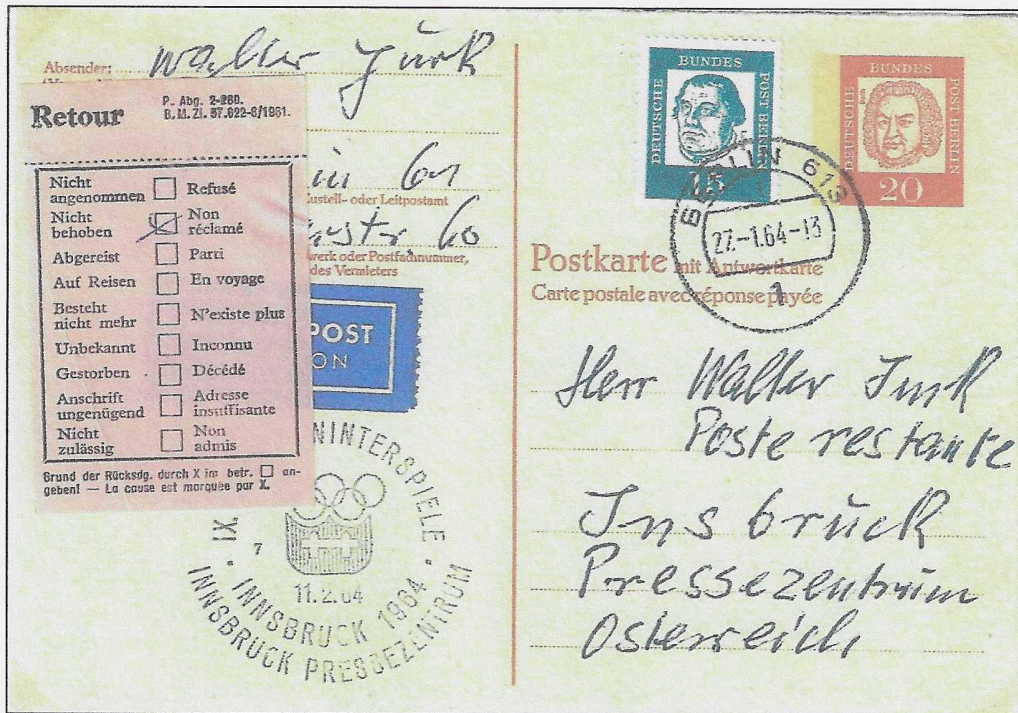 Absender:
Walter Jurk
Retour
P. Abg. 2-280.
B. M. Zl. 57.022-8/1961.
Nicht angenommen
Refusé
Nicht behoben
Non réclamé
Abgereist
Parti
Auf Reisen
En voyage
Besteht nicht mehr
N'existe plus
Unbekannt
Inconnu
Gestorben
Décédé
Anschrift ungenügend
Adresse insuffisante
Nicht zulässig
Non admis
Grund der Rücksdg. durch X im betr. □ an-
geben! — La cause est marquée par X.
Zustell- oder Leitpostamt
60
werk oder Postfachnummer,
des Vermieters
POST
ON
WINTERSPIELE
IX
7
11.2.64
INNSBRUCK 1964
INNSBRUCK PRESSEZENTRUM
DEUTSCHE BUNDES POST BERLIN
15
DEUTSCHE BUNDES POST BERLIN
20
BERLIN 613
27.-1.64-13
1
Postkarte mit Antwortkarte
Carte postale avec réponse payée
Herr Walter Jurk
Poste restante
Innsbruck
Pressezentrum
Österreich